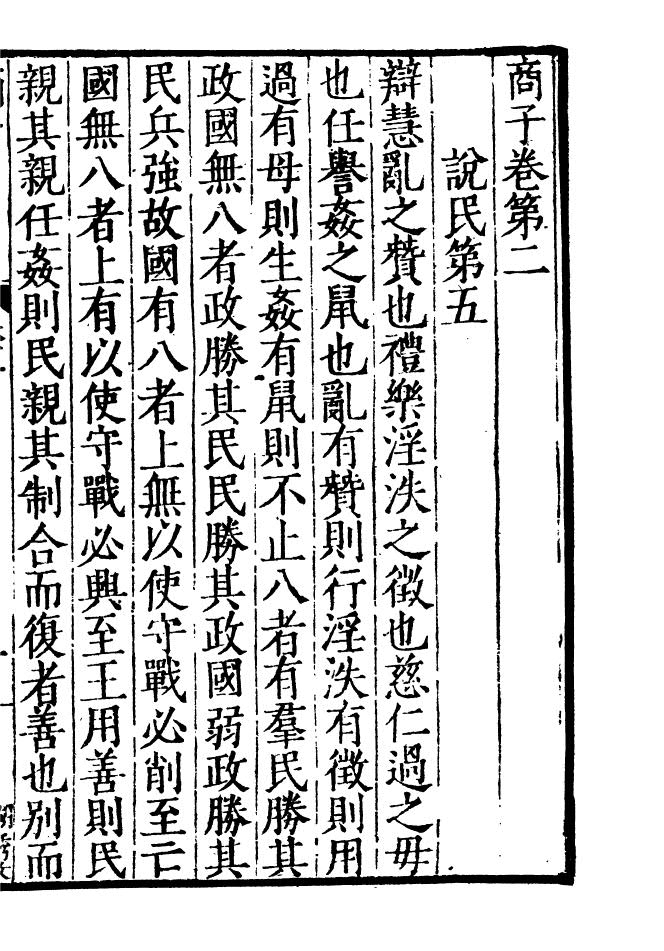 商子卷第二
說民第五
辯慧亂之贊也禮樂淫泆之徵也慈仁過之毋
也任譽姦之鼠也亂有贊則行淫泆有徵則用
過有母則生姦有鼠則不止八者有羣民勝其
政國無八者政勝其民民勝其政國弱政勝其
民兵強故國有八者上無以使守戰必削至亡
國無八者上有以使守戰必興至王用善則民
親其親任姦則民親其制合而復者善也別而